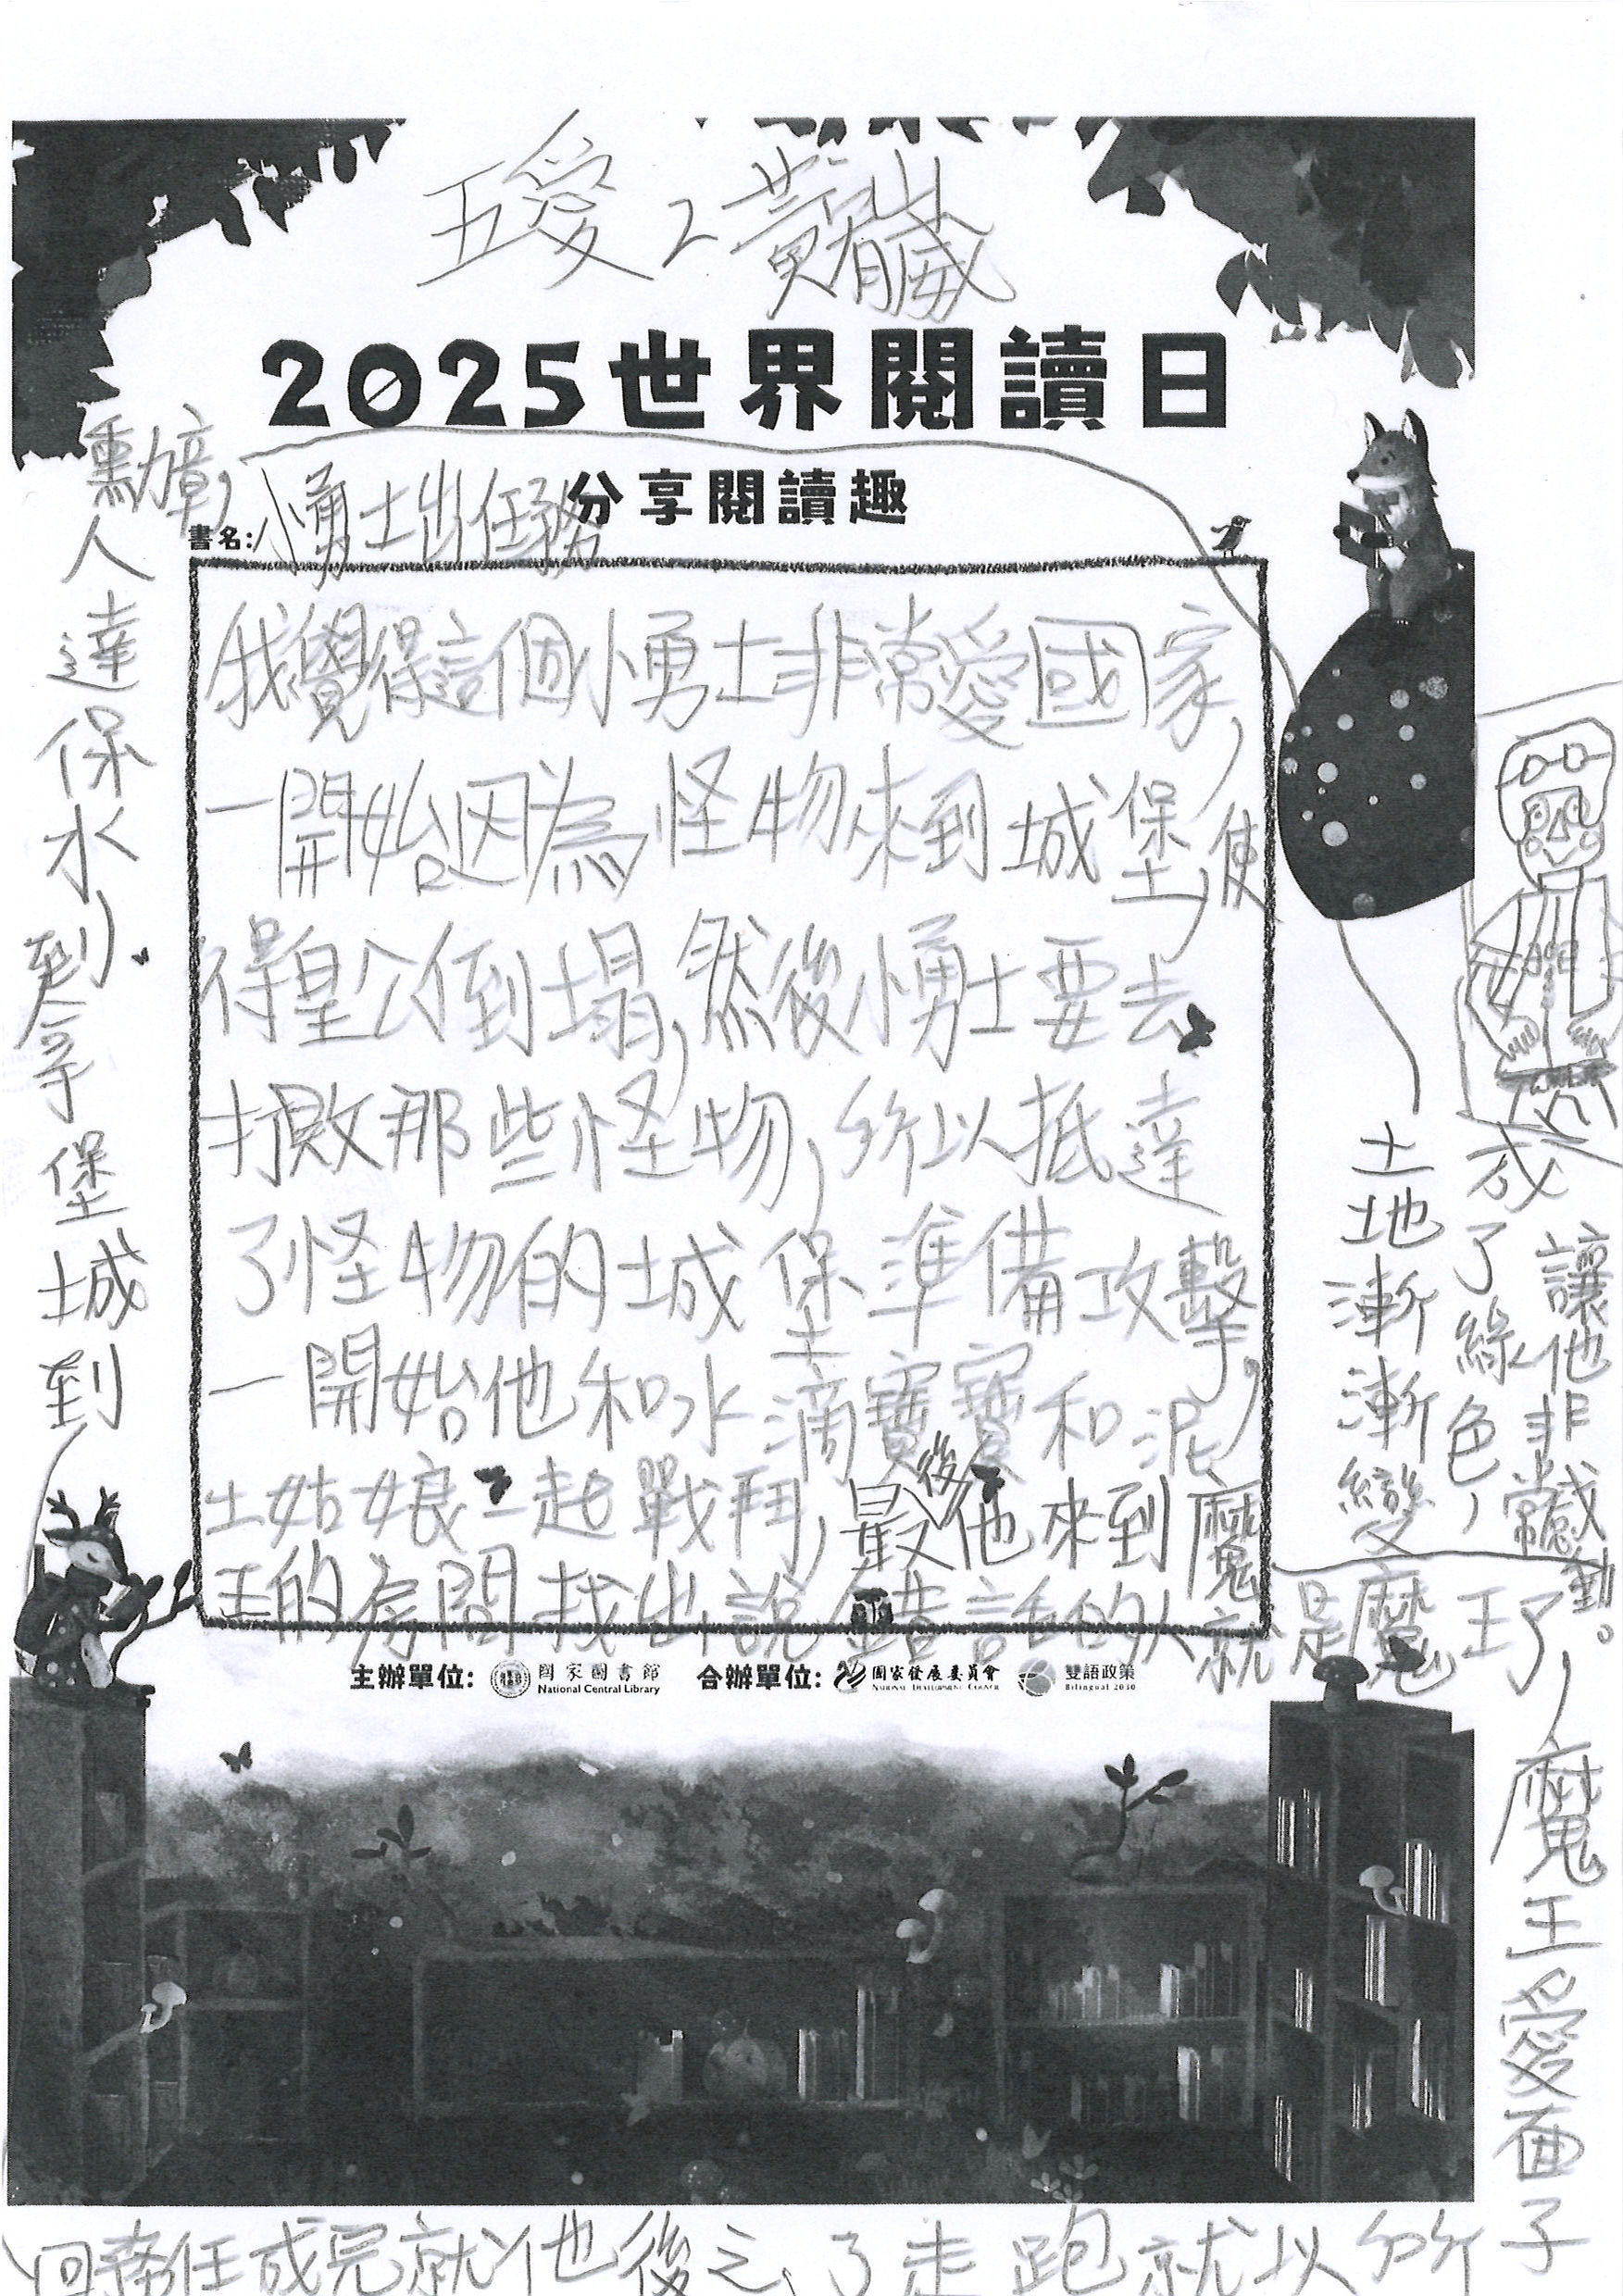 五愛2黃宥崴
2025世界閱讀日
分享閱讀趣
書名:小勇士出任務
我覺得這個小勇士非常愛國家,
一開始因為怪物來到城堡,使
得皇公倒塌,然後小勇士要去
打敗那些怪物,所以抵達
了怪物的城堡準備攻擊,
一開始他和水滴寶寶和泥
土姑娘一起戰鬥,最後他來到魔
王的房間找出說錯話的人就是魔王了,
魔王愛面子
所以就跑走了之後他就完成任務回
到城堡拿到水保達人
勳章,
土地漸漸變
成了綠色,
讓他非常感動。
主辦單位: 國家圖書館 National Central Library 合辦單位: 國家發展委員會 National Development Council 雙語政策 Bilingual 2030